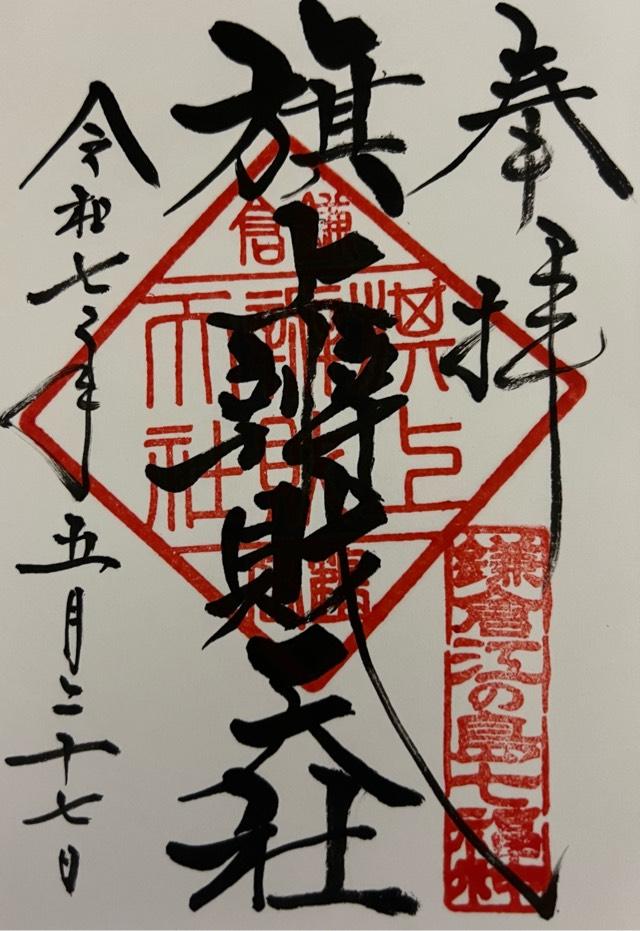 奉拝
鎌倉江の島七福神
旗上辨財天社
鎌倉
旗上
辨財
天社
令和七年五月二十七日